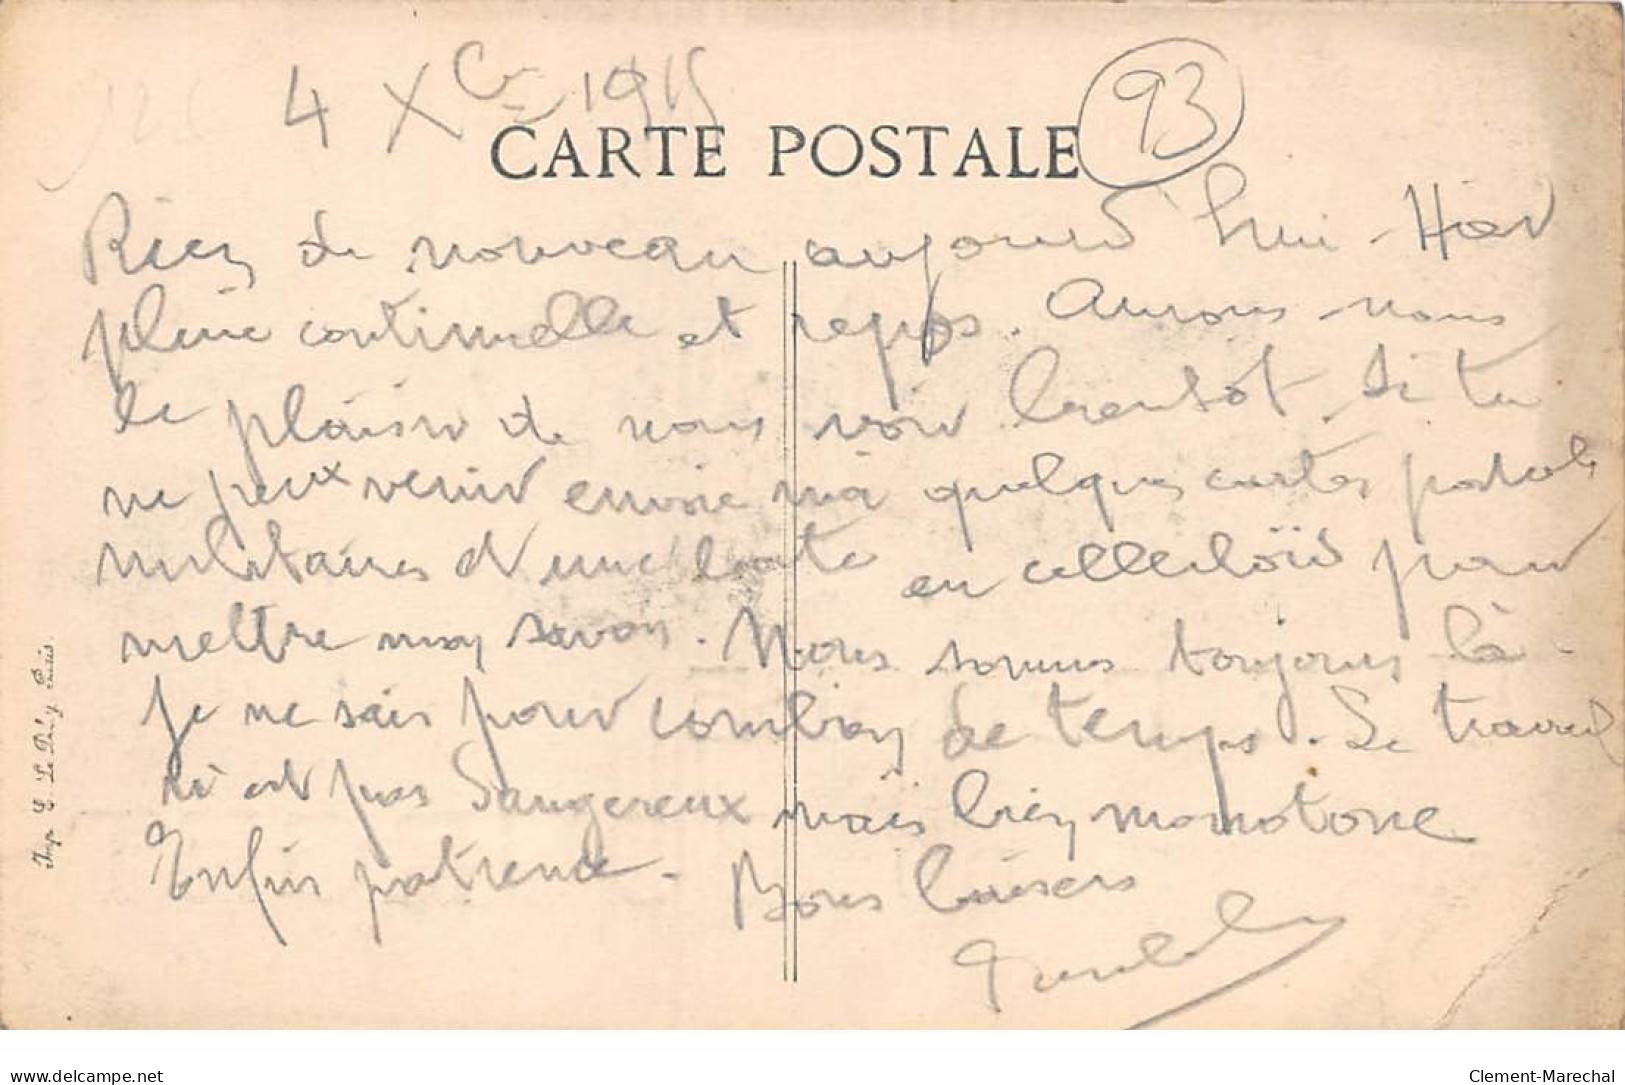 4 Xbre 1915
CARTE POSTALE
93
Rien de nouveau aujourd'hui - Hier
pluie continuelle et repos. Aurons-nous
le plaisir de nous voir bientôt. Si tu
ne peux venir envoie moi quelques cartes postales
militaires et une boite en celluloïd pour
mettre mon savon. Nous sommes toujours là -
Je ne sais pour combien de temps. Le travail
n'est pas dangereux mais bien monotone
Enfin patience - Bons baisers
Imp. E. Le Deley, Paris.
Clement-Marechal
delcampe.net